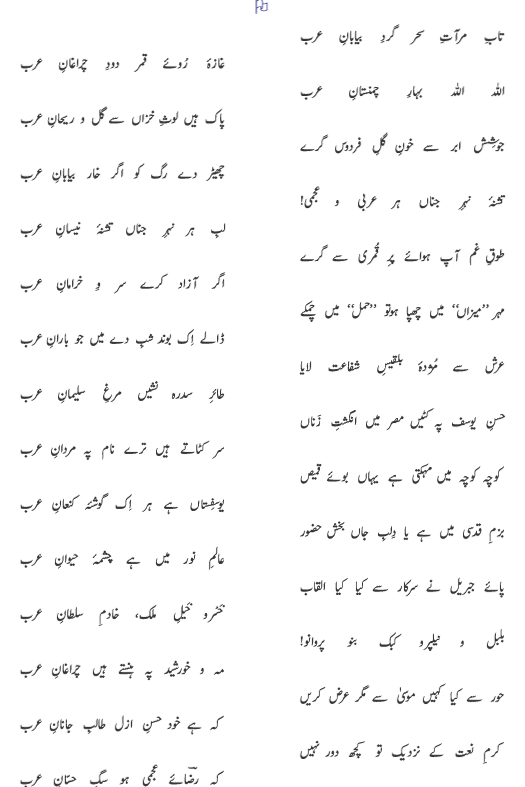 تابِ مرآتِ سحر گردِ بیابانِ عرب
غازۂ رُوئے قمر دودِ چراغانِ عرب
اللہ اللہ بہارِ چمنستانِ عرب
پاک ہیں لوثِ خزاں سے گل و ریحانِ عرب
جوشِشِ ابر سے خونِ گلِ فردوس گرے
چھیڑ دے رگ کو اگر خار بیابانِ عرب
تشنۂ نہرِ جناں ہر عربی و عجمی!
لبِ ہر نہرِ جناں تشنۂ نیسانِ عرب
طوقِ غم آپ ہوائے پرِ قُمری سے گرے
اگر آزاد کرے سر وِ خرامانِ عرب
مہر ’’میزاں‘‘ میں چھپا ہوتو ’’حمل‘‘ میں چمکے
ڈالے اِک بوند شبِ دے میں جو بارانِ عرب
عرش سے مُژدۂ بلقیسِ شفاعت لایا
طائرِ سدرہ نشیں مرغِ سلیمانِ عرب
حسنِ یوسف پہ کٹیں مصر میں انگشتِ زَناں
سر کٹاتے ہیں ترے نام پہ مردانِ عرب
کوچہ کوچہ میں مہکتی ہے یہاں بوئے قمیص
یوسِفستاں ہے ہر اِک گوشۂ کنعانِ عرب
بزمِ قدسی میں ہے یا دِلبِ جاں بخش حضور
عالمِ نور میں ہے چشمۂ حیوانِ عرب
پائے جبریل نے سرکار سے کیا کیا القاب
خسرو خَیلِ ملک، خادمِ سلطانِ عرب
بلبل و نیلپرو کبک بنو پروانو!
مہ و خورشید پہ ہنستے ہیں چراغانِ عرب
حور سے کیا کہیں موسیٰ سے مگر عرض کریں
کہ ہے خود حسنِ ازل طالبِ جانانِ عرب
کرمِ نعت کے نزدیک تو کچھ دور نہیں
کہ رضؔائے عجمی ہو سگِ حسّانِ عرب